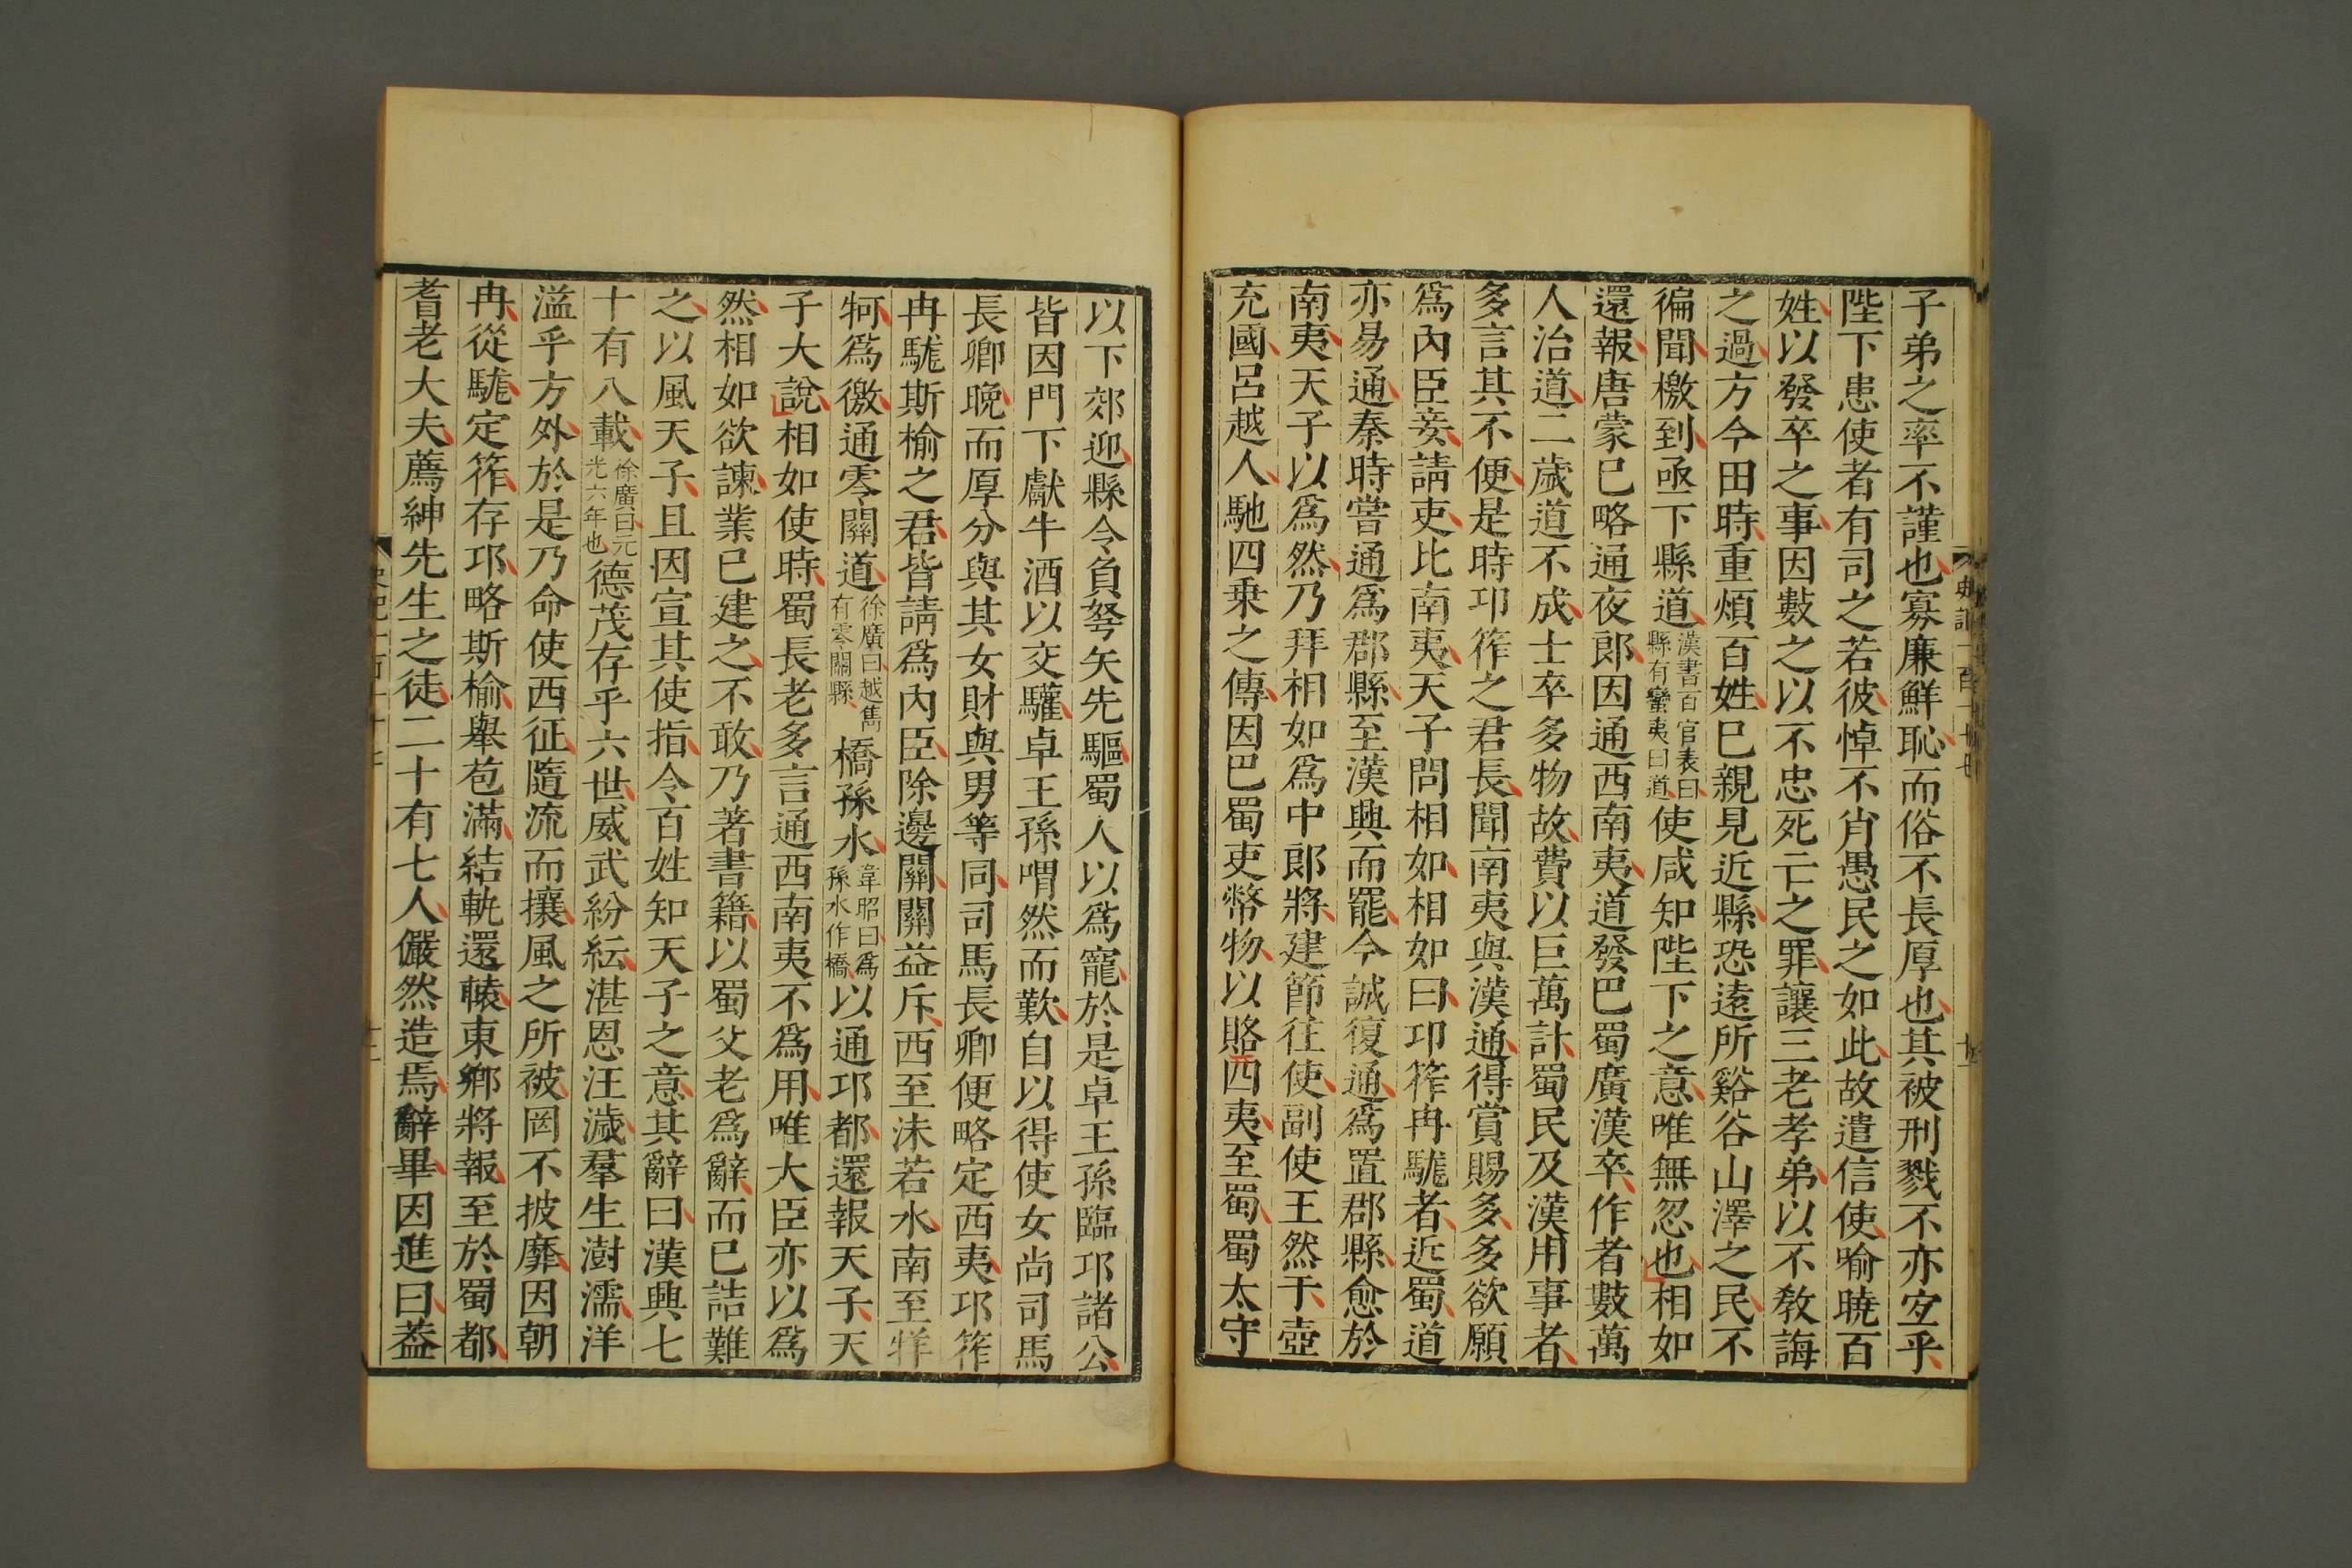 子弟之率不謹也寡廉鮮恥而俗不長厚也其被刑戮不亦宐乎
陛下患使者有司之若彼悼不肖愚民之如此故遣信使喻曉百
姓以發卒之事因數之以不忠死亡之罪讓三老孝弟以不敎誨
之過方今田時重煩百姓巳親見近縣恐遠所谿谷山澤之民不
徧聞檄到亟下縣道漢書百官表曰縣有蠻夷曰道使咸知陛下之意唯無忽也相如
還報唐蒙巳略通夜郎因通西南夷道發巴蜀廣漢卒作者數萬
人治道二歲道不成士卒多物故費以巨萬計蜀民及漢用事者
多言其不便是時邛筰之君長聞南夷與漢通得賞賜多多欲願
爲內臣妾請吏比南夷天子問相如相如曰邛筰冉駹者近蜀道
亦易通秦時嘗通爲郡縣至漢興而罷今誠復通爲置郡縣愈於
南夷天子以爲然乃拜相如爲中郎將建節往使副使王然于壺
充國呂越人馳四乘之傳因巴蜀吏幣物以賂西夷至蜀蜀太守
以下郊迎縣令負弩矢先驅蜀人以爲寵於是卓王孫臨邛諸公
皆因門下獻牛酒以交驩卓王孫喟然而歎自以得使女尚司馬
長卿晚而厚分與其女財與男等同司馬長卿便略定西夷邛筰
冉駹斯榆之君皆請爲內臣除邊關關益斥西至沬若水南至牂
牱爲徼通零關道徐廣曰越雋有零關縣橋孫水韋昭曰爲孫水作橋以通邛都還報天子天
子大說相如使時蜀長老多言通西南夷不爲用唯大臣亦以爲
然相如欲諫業巳建之不敢乃著書籍以蜀父老爲辭而巳詰難
之以風天子且因宣其使指令百姓知天子之意其辭曰漢興七
十有八載徐廣曰元光六年也德茂存乎六世威武紛紜湛恩汪濊羣生澍濡洋
溢乎方外於是乃命使西征隨流而攘風之所被罔不披靡因朝
冉從駹定筰存邛略斯榆舉苞滿結軌還轅東鄉將報至於蜀都
耆老大夫薦紳先生之徒二十有七人儼然造焉辭畢因進曰葢